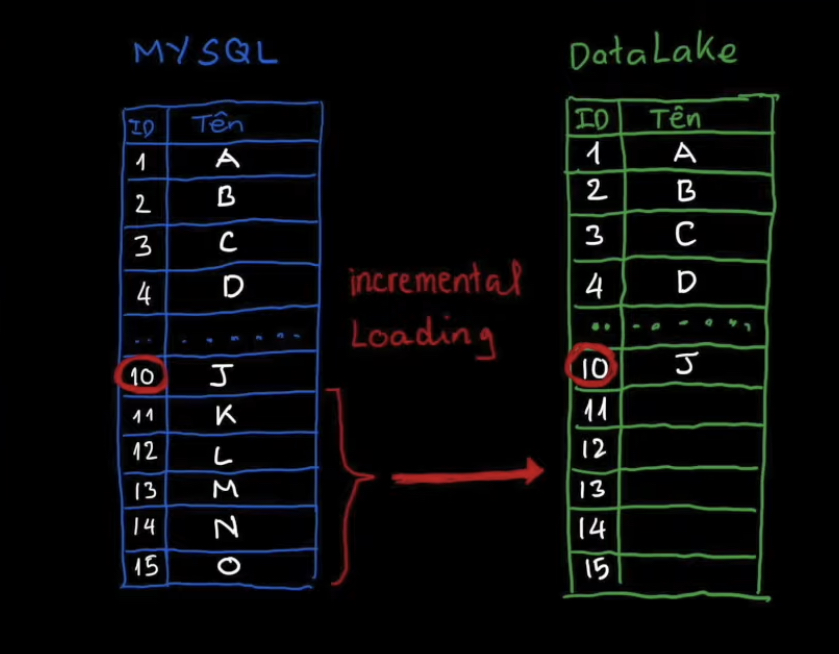 MYSQL
DataLake
ID Tên
1 A
2 B
3 C
4 D
.. . . . . . .
10 J
11 K
12 L
13 M
14 N
15 O
incremental
Loading
ID Tên
1 A
2 B
3 C
4 D
.. . . . . . .
10 J
11
12
13
14
15